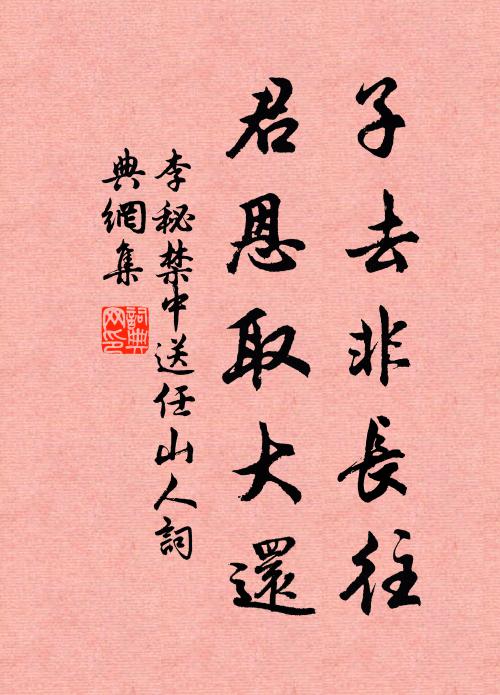 子去非長往
君恩取大還
李秘禁中送任山人詞
典網集
詞典
网印